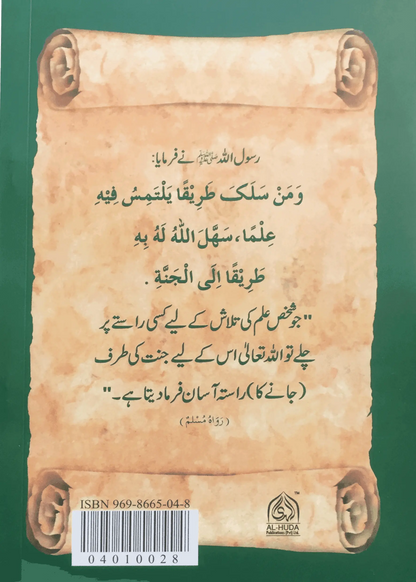 رسول اللہ ﷺ نے فرمایا:
وَمَنْ سَلَكَ طَرِيْقًا يَلْتَمِسُ فِيْهِ
عِلْمًا، سَهَّلَ اللهُ لَهُ بِهِ
طَرِيْقًا اِلَى الْجَنَّةِ .
"جو شخص علم کی تلاش کے لیے کسی راستے پر
چلے تو اللہ تعالیٰ اس کے لیے جنت کی طرف
(جانے کا) راستہ آسان فرما دیتا ہے۔"
(رَوَاهُ مُسْلِمْ)
ISBN 969-8665-04-8
04010028
الهدى
TM
AL-HUDA
Publications (Pvt) Ltd.